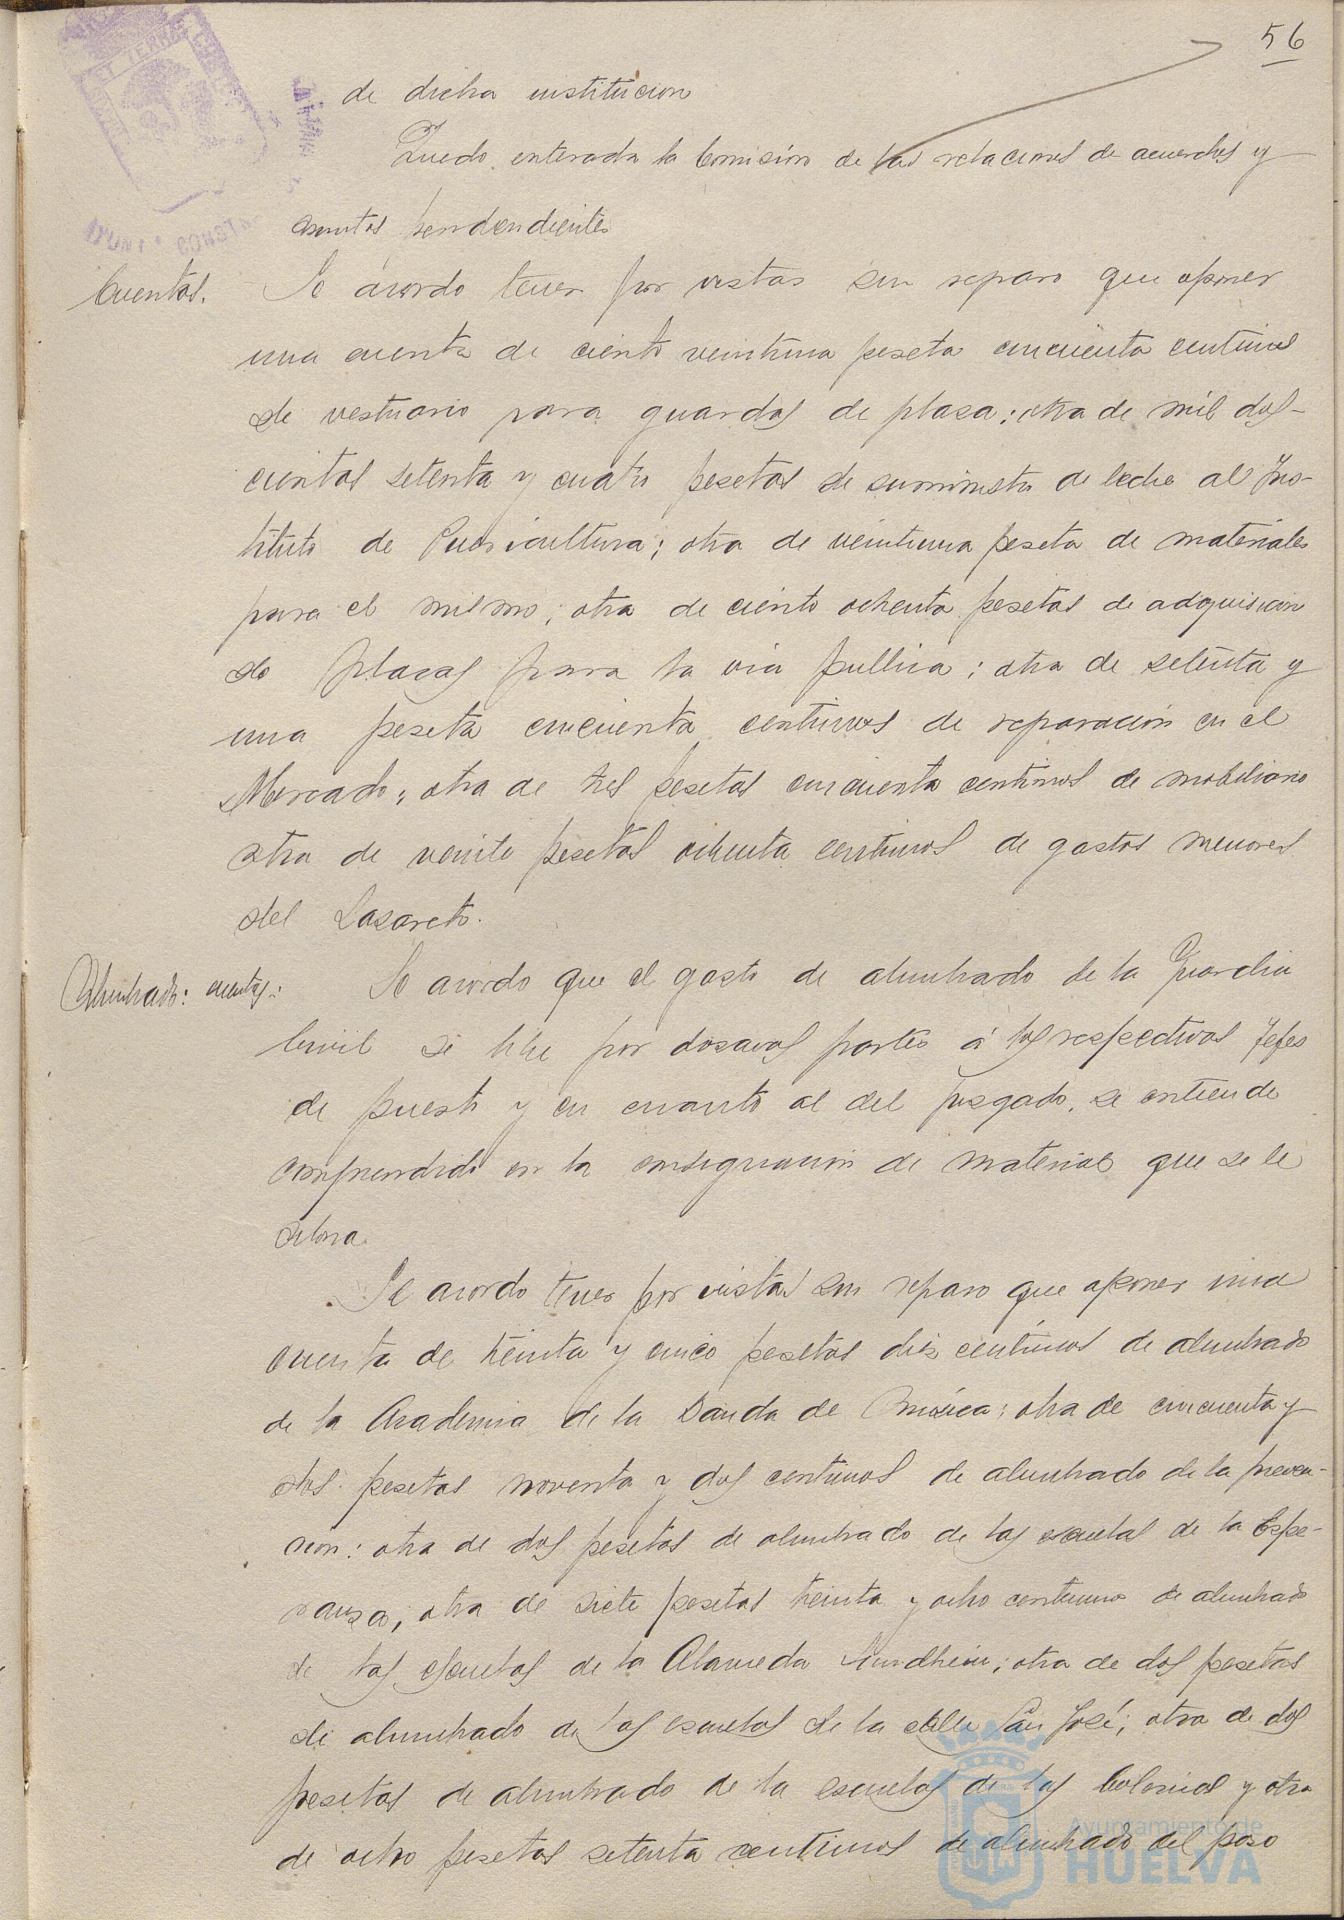 56
de dicha institucion
Quedo enterada la Comisión de las relaciones de acuerdos y
asuntos pendendientes
Cuentas. Se acordo tener por vistas sin reparo que oponer
una cuenta de ciento veintiuna peseta cincuenta centimos
de vestuario para guardas de plaza; otra de mil dos-
cientas setenta y cuatro pesetas de suministro de leche al Ins-
tituto de Puericultura; otra de veintiuna peseta de materiales
para el mismo; otra de ciento ochenta pesetas de adquisicion
de placas para la via publica; otra de setenta y
una peseta cincuenta centimos de reparación en el
Mercado; otra de tres pesetas cincuenta centimos de mobiliario
otra de veinte pesetas ochenta centimos de gastos menores
del Lazareto.
Alumbrado: cuentas: Se acordo que el gasto de alumbrado de la Guardia
Civil se libre por dozavas partes á los respectivos Jefes
de puesto y en cuanto al del juzgado, se entiende
comprendido en la consignacion de material que se le
libra.
Se acordo tener por vistas sin reparo que oponer una
cuenta de treinta y cinco pesetas diez centimos de alumbrado
de la Academia de la Banda de Música; otra de cincuenta y
dos pesetas noventa y dos centimos de alumbrado de la preven-
cion: otra de dos pesetas de alumbrado de las escuelas de la Espe-
ranza, otra de siete pesetas treinta y ocho centimos de alumbrado
de las escuelas de la Alameda Sundheim; otra de dos pesetas
de alumbrado de las escuelas de la calle San José; otra de dos
pesetas de alumbrado de la escuelas de las Colonias y otra
de ocho pesetas setenta centimos de alumbrado del paso
Ayuntamiento de
HUELVA